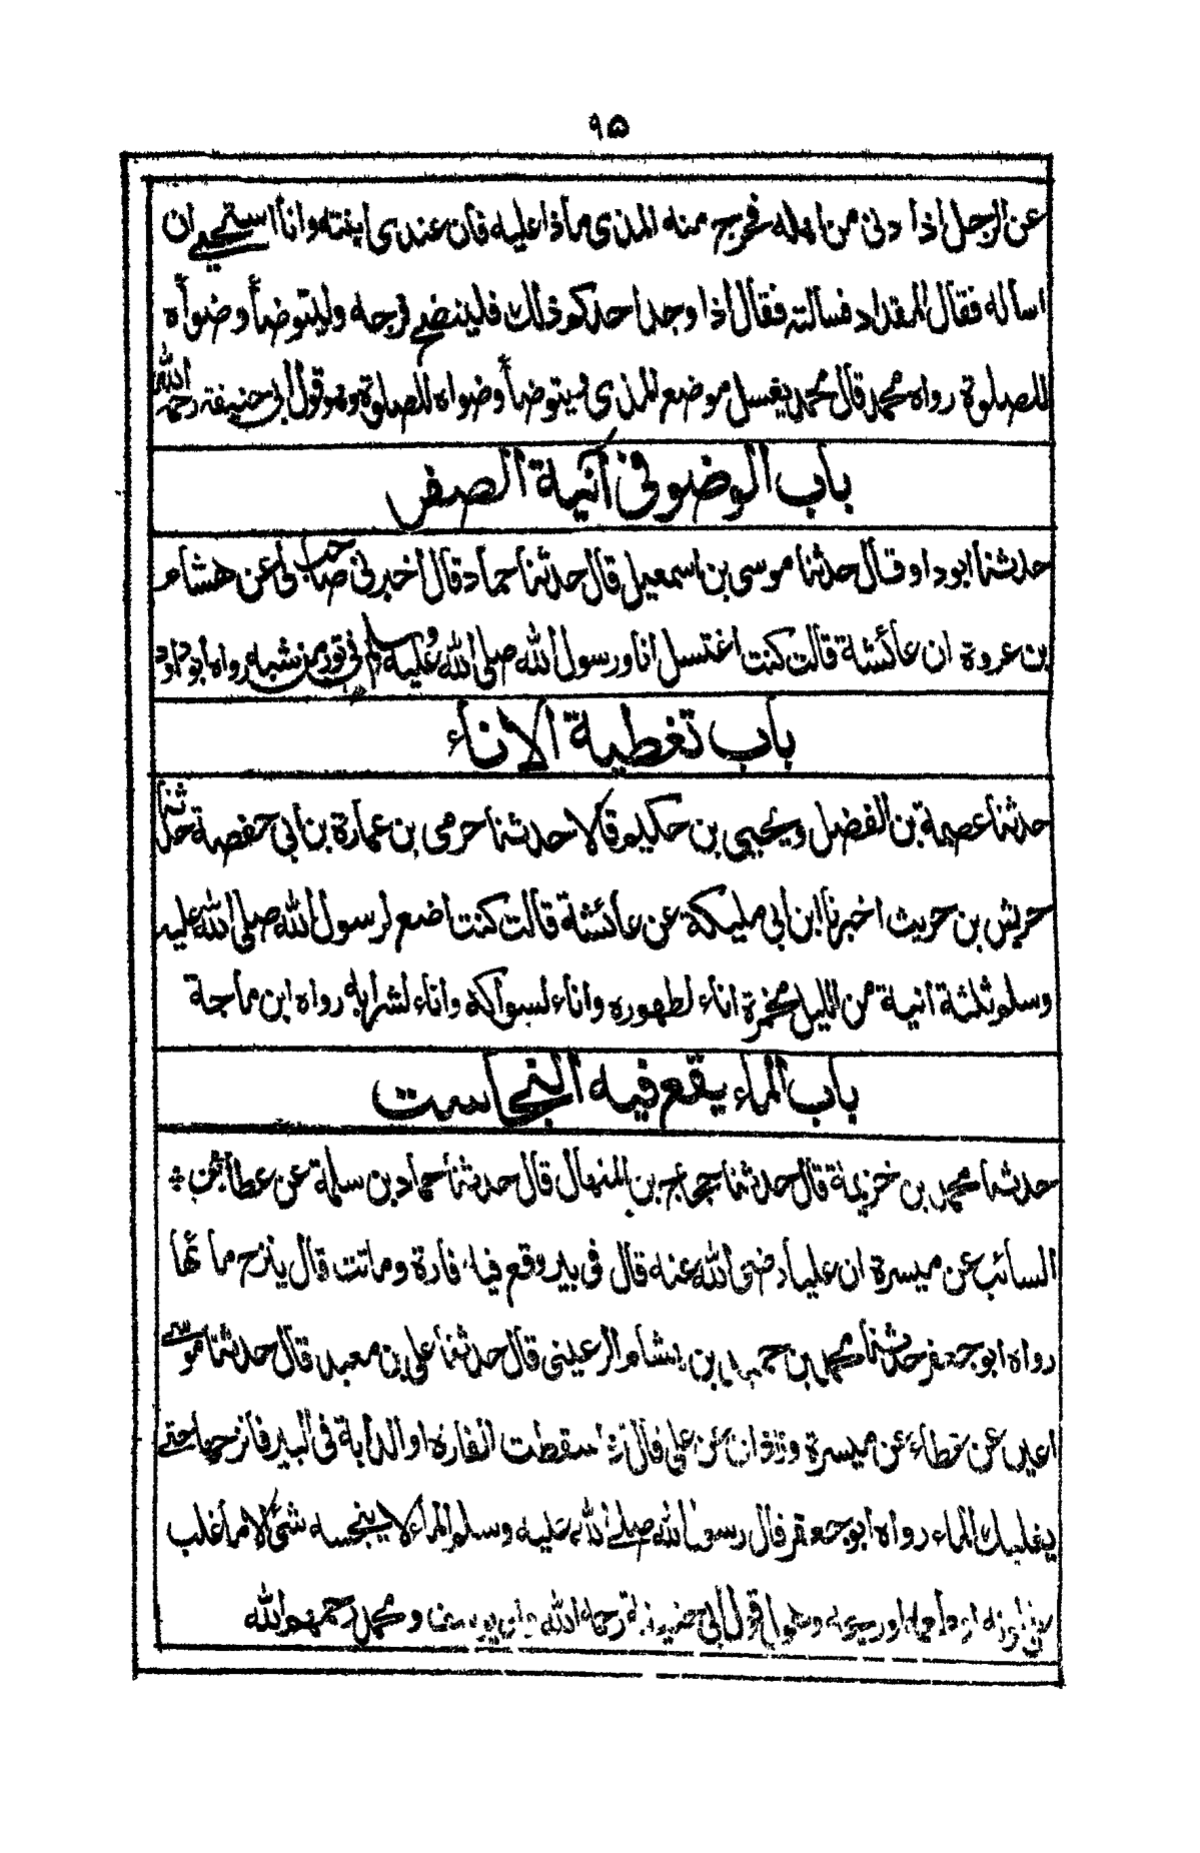 ٩٥
عن الرجل اذا دنى من اهله فخرج منه المذى ماذا عليه فان عندى ابنته وانا استحيى ان
اساله فقال المقداد فسالته فقال اذا وجد احدكم ذلك فلينضح فرجه وليتوضأ وضوأه
للصلوة رواه محمد قال محمد يغسل موضع المذى ويتوضأ وضواه للصلوة وهو قول ابى حنيفة رحمه الله
باب الوضو فى آنية الصفر
حدثنا ابوداو قال حدثنا موسى بن اسمعيل قال حدثنا حماد قال اخبرنى صاحب لى عن هشام
بن عروة ان عائشة قالت كنت اغتسل انا ورسول الله صلى الله عليه وسلم فى تور من شبه رواه ابوداود
باب تغطية الاناء
حدثنا عصمة بن الفضل ويحيى بن حكيم قالا حدثنا حرمى بن عمارة بن ابى حفصة حدثنا
حريش بن حريث اخبرنا ابن ابى مليكة عن عائشة قالت كنت اضع لرسول الله صلى الله عليه
وسلم ثلثة انية من الليل مخمرة اناء لطهوره واناء لسواكه واناء لشرابه رواه ابن ماجة
باب الماء يقع فيه النجاست
حدثنا محمد بن خزيمة قال حدثنا حجاج بن المنهال قال حدثنا حماد بن سلمة عن عطا بن
السائب عن ميسرة ان عليا رضى الله عنه قال فى بير وقع فيها فارة وماتت قال ينزح ماؤها
رواه ابوجعفر حدثنا محمد بن حميد بن هشام الرعينى قال حدثنا على بن معبد قال حدثنا موسى
اعين عن عطاء عن ميسرة وزاذان عن على قال اذا سقطت الفارة او الدابة فى البير فانزحها حتى
يغلبك الماء رواه ابوجعفر قال رسول الله صلى الله عليه وسلم الماء لا ينجسه شئ الا ما غلب
لونه او طعمه او ريحه وهو قول ابى حنيفة رحمه الله وابى يوسف ومحمد رحمهم الله